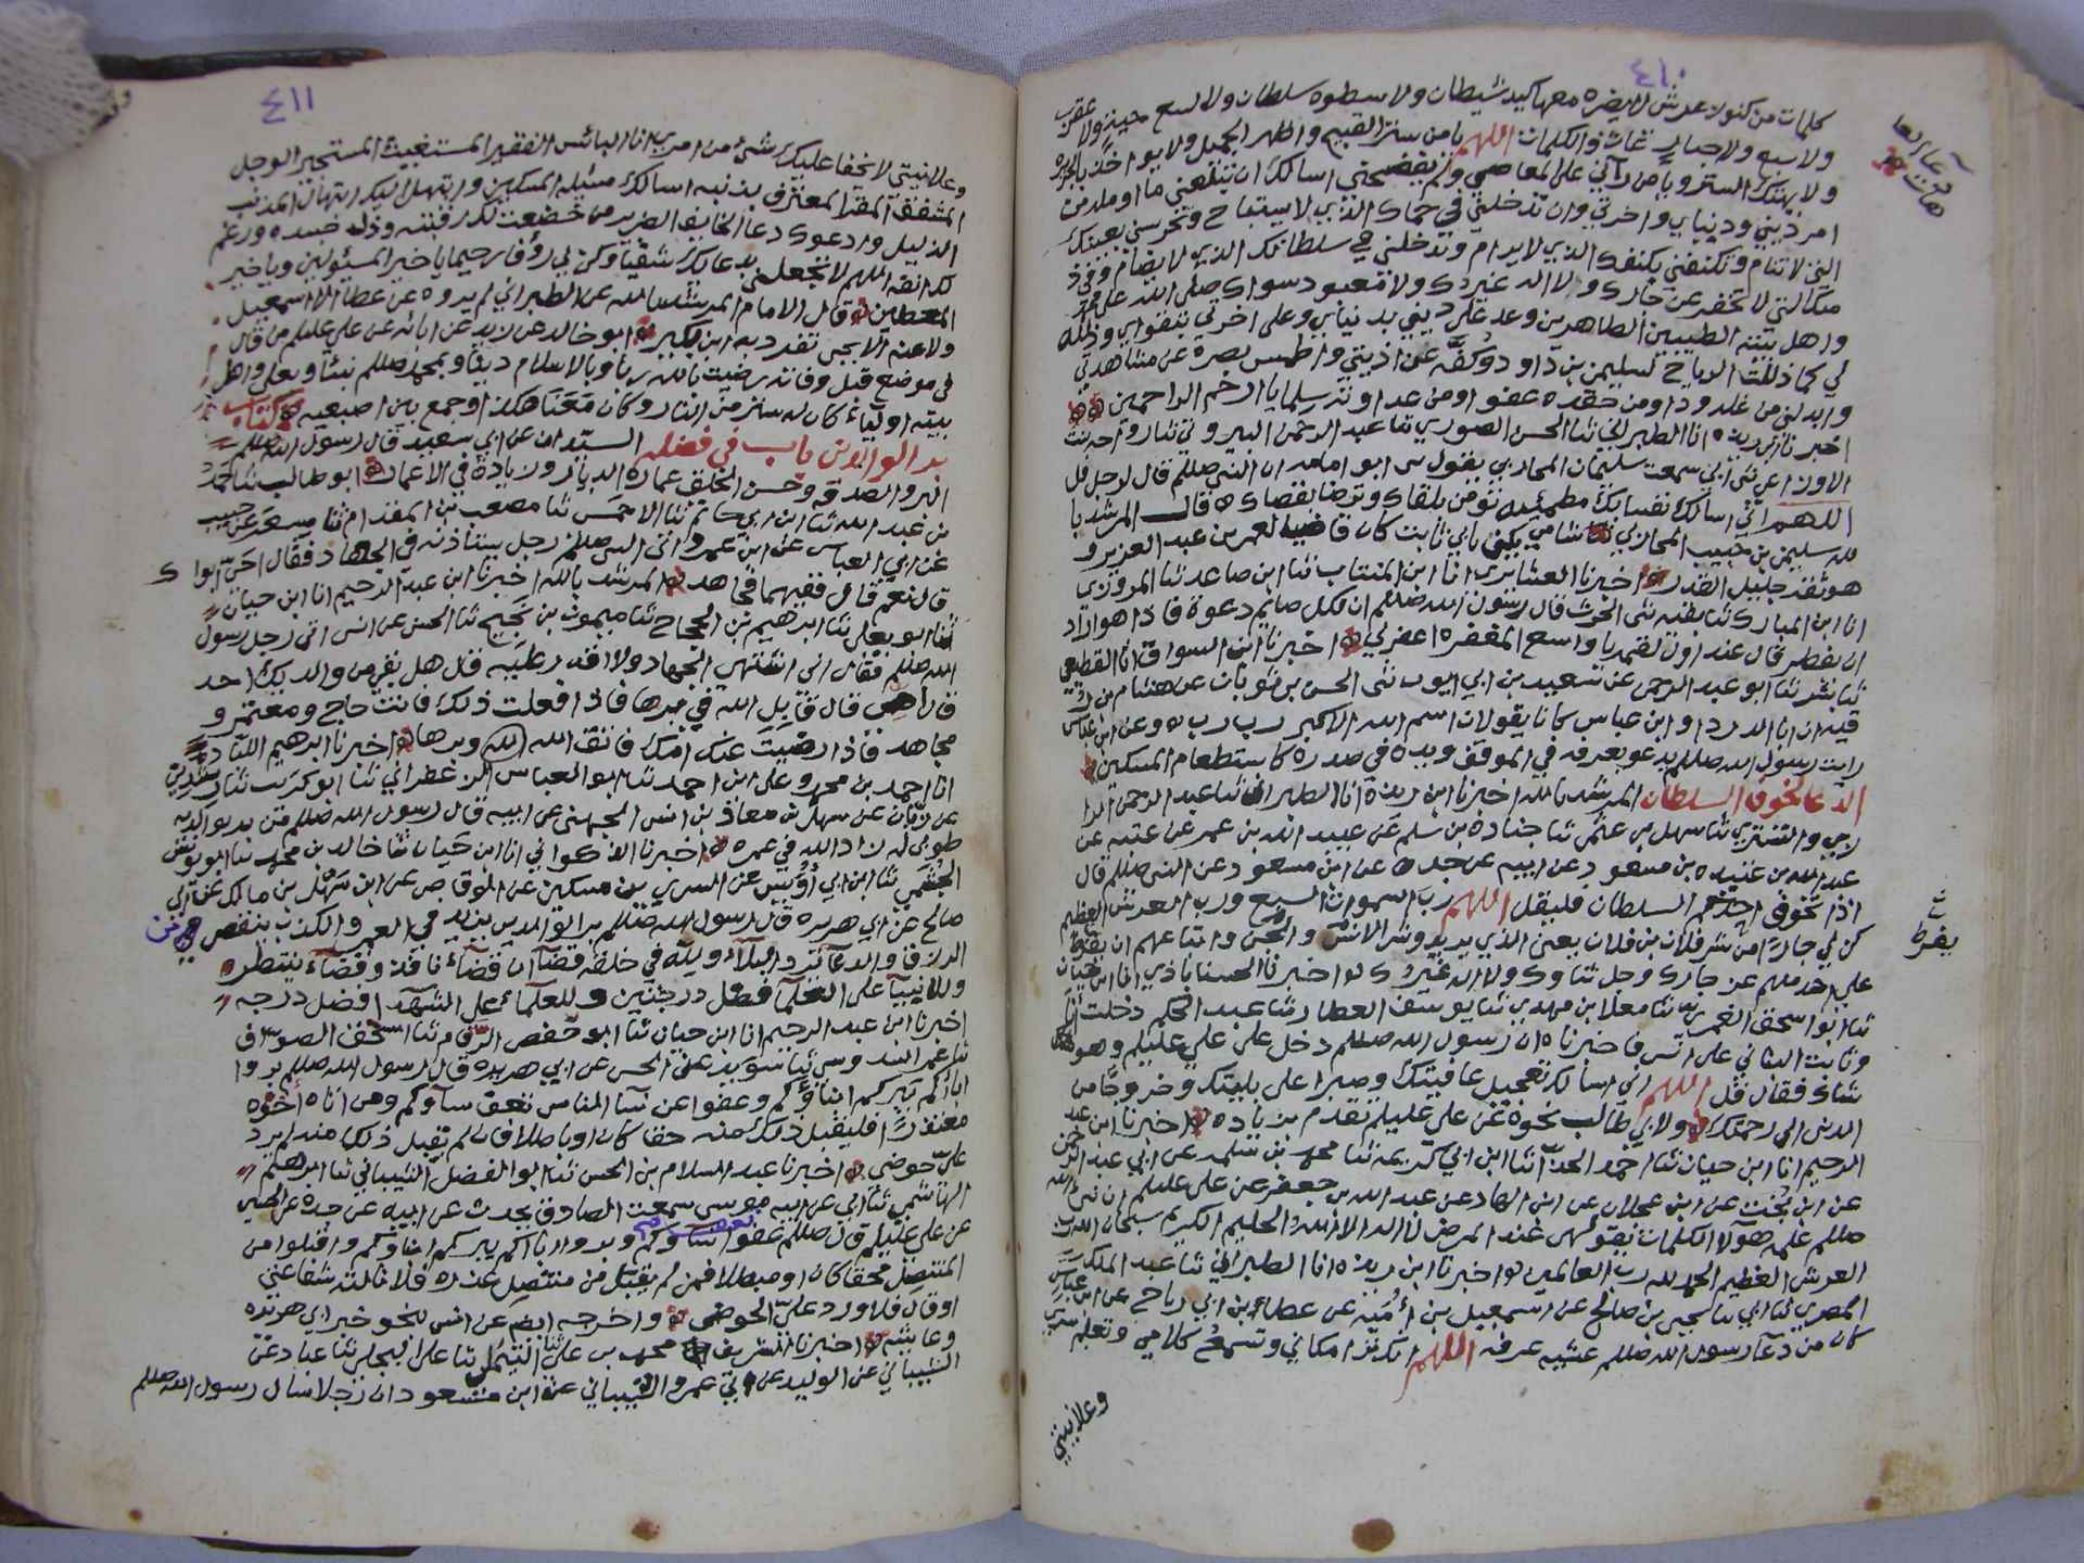 ٤١٠
كلمات من كنوز لا يضره معها كيد شيطان ولا سطوه سلطان ولا لسع حيه ولا عقرب
ولا سبع ولا جبار اللهم يا من ستر القبيح واظهر الجميل ولا يواخذ بالجريره
ولا يهتك الستر ويا من رآني على المعاصي ولم يفضحني اسالك ان تبلغني ما اومله من
امر ديني ودنياي واخرتي وان تدخلني في حماك الذي لا يستباح وتحرسني بعينك
التي لا تنام وتكنفني بكنفك الذي لا يرام وتدخلني في سلطانك الذي لا يضام وفي ذ
متك التي لا تخفر عز جارك ولا اله غيرك ولا معبود سواك صلى الله على محمد
واهل بيته الطيبين الطاهرين وعد على ديني بدنياي وعلى اخرتي بتقواي وذلله
لي كما ذللت الرياح لسليمن بن داود وكفه عن اذيتي واطمس بصره عن مشاهدتي
وابدلني من غله ودا ومن حقده عفوا ومن عداوته سلما يا ارحم الراحمين
اخبرنا ابن ريذه انا الطبراني ثنا الحسن الصوري ثنا عبد الرحمن البيروتي
الاوزاعي ثنى ابي سمعت سليمان المحاربي يقول ابو امامه ان النبي صللم قال لرجل قل
اللهم اني اسالك نفسا بك مطمئنه تؤمن بلقاك وترضا بقضاك قال المرشد با
لله سليمن بن حبيب المحاربي شامي يكنى بابي ثابت كان قاضيا لعمر بن عبد العزيز و
هو ثقه جليل القدر اخبرنا العشاري انا ابن المنتاب ثنا ابن صاعد ثنا المروزي
انا ابن المبارك ثنا بقيه ثنى الحرث قال رسول الله صللم ان لكل صايم دعوة فاذا هو اراد
ان يفطر قال عند اول لقمه يا واسع المغفره اغفر لي اخبرنا ابن السواق انا القطيعي
ثنا بشر ثنا ابو عبد الرحمن عن سعيد بن ابي ايوب ثنى الحسن بن ثوبان عن هشام بن
ان ابا الدردا وابن عباس كانا يقولان اسم الله الاكبر رب رب وعن ابن عباس
رايت رسول الله صللم يدعو بعرفه في الموقف ويده في صدره كاستطعام المسكين
الدعا لخوف السلطان المرشد بالله اخبرنا ابن ريذه انا الطبراني ثنا عبد الرحمن
والتستري ثنا سهل بن عثمن ثنا جناده بن سلم عن عبيد الله بن عمر عن عتبه عن
عبد الله بن عتبه بن مسعود عن ابيه عن جده عن ابن مسعود عن النبي صللم قال
اذا تخوف احدكم السلطان فليقل اللهم رب السموات السبع ورب العرش العظيم
كن لي جارا من شر فلان بن فلان يعني الذي يريد وشر الانس والجن واتباعهم ان يفرط
علي احد منهم عز جارك وجل ثناوك ولا اله غيرك اخبرنا الحسناباذي انا ابن حيان
ثنا ابو اسحق ثنا معلا بن مهدي ثنا يوسف العطار ثنا عبد الحكم دخلت انا
وثابت البناني على انس فاخبرنا ان رسول الله صللم دخل على علي عليلم وهو
شاك فقال قل اللهم اني اسالك تعجيل عافيتك وصبرا على بليتك وخروجا من
الدنيا الى رحمتك ولابي طالب نحوه عن علي عليلم تقدم بزياده اخبرنا ابن عبد
الرحيم انا ابن حيان ثنا احمد ثنا ابن ابي كريمه ثنا محمد بن سلمه عن ابي عبد الرحمن
عن ابن بخت عن ابن عجلان عن ابن الهاد عن عبد الله بن جعفر عن علي عليلم ان نبي الله
صللم علمه هولا الكلمات يقولهن عند المريض لا اله الا الله الحليم الكريم سبحان الله رب
العرش العظيم الحمد لله رب العالمين اخبرنا ابن ريذه انا الطبراني ثنا عبد الملك
المصري ثنا ابي ثنا يحيى بن صالح عن اسمعيل بن اميه عن عطاء بن ابي رباح عن ابن عباس
كان من دعآ رسول الله صللم عشيه عرفه اللهم انك ترا مكاني وتسمع كلامي وتعلم سري
وعلانيتي
يفرط
٤١١
وعلانيتي لا يخفا عليك شئ من امري انا البائس الفقير المستغيث المستجير الوجل
المشفق المقر المعترف بذنبه اسالك مسئلة المسكين وابتهل اليك ابتهال المذنب
الذليل وادعوك دعا الخايف الضرير من خضعت لك رقبته وذل جسده ورغم
لك انفه اللهم لا تجعلني بدعائك شقيا وكن لي رؤفا رحيما يا خير المسئولين ويا خير
المعطين قال الامام المرشد بالله عن الطبراني لم يروه عن عطا الا اسمعيل
ولا عنه الا يحيى تفرد به ابن بكير ابو خالد عن زيد عن ابائه عن علي عليلم من قال
في موضع قبل وفاته رضيت بالله ربا وبالاسلام دينا وبمحمد صللم نبيا وبعلي واهل
بيته اوليآء كان له ستر من النار وكان مَعَنا هكذا وجمع بين اصبعيه كتاب
بر الوالدين باب في فضله السيدان عن ابي سعيد قال رسول الله صللم
البر والصدقه وحسن الخلق عمارة الديار وزيادة في الاعمار ابو طالب ثنا احمد
بن عبد الله ثنا ابن ابي حاتم ثنا الاحمس ثنا مصعب بن المقدام ثنا مسعر عن حبيب
عن ابي العباس عن ابن عمرو اتى النبي صللم رجل يستأذنه في الجهاد فقال احيّ ابوا ك
قال نعم قال ففيهما فجاهد المرشد بالله اخبرنا ابن عبد الرحيم انا ابن حيان
ثنا ابو يعلى ثنا ابرهيم بن الحجاج ثنا ميمون بن نجيح ثنا الحسن عن انس اتى رجل رسول
الله صللم فقال اني اشتهي الجهاد ولا اقدر عليه قال هل بقي من والديك احد
قال امي قال قابل الله في برها فاذا فعلت ذلك فانت حاج ومعتمر و
مجاهد فاذا رضيت عنك امك فاتق الله وبرها اخبرنا ابرهيم
انا احمد بن محمد وعلي ابن احمد ثنا ابو العباس الزعفراني ثنا ابو كريب ثنا رشدين
عن زبان عن سهل بن معاذ بن انس الجهني عن ابيه قال رسول الله صللم من بر والديه
طوبى له زاد الله في عمره اخبرنا الذكواني انا ابن حيان ثنا خالد بن محمد ثنا ابو يونس
ثنا ابن ابي أُوَيس عن السري بن مسكين عن الوقاص عن ابن سهيل بن مالك عن ابي
صالح عن ابي هريره قال رسول الله صللم بر الوالدين يزيد في العمر والكذب ينقص
الرزق والدعآ يرد البلآء ولله في خلقه قضآان قضآء نافذ وقضآء ينتظر
وللانبيآ على العلمآ فضل درجتين وللعلمآء على الشهدآ افضل درجه
اخبرنا ابن عبد الرحيم انا ابن حيان ثنا ابو حفص ثنا اسحق الصواف
ثنا سويد عن الحسن عن ابي هريره قال رسول الله صللم بروا
اباكم تبركم ابناؤكم وعفوا عن نسآ الناس تعف نسآوكم ومن اتاه اخوه
معتذرًا فليقبل ذلك منه حقا كان او باطلا فان لم يقبل ذلك منه لم يرد
عليّ حوضي اخبرنا عبد السلام بن الحسن ثنا ابو الفضل الشيباني ثنا ابرهيم
الهاشمي ثنا ابي عن ابيه موسى سمعت الصادق يحدث عن ابيه عن جده عن الحسين
عن علي عليلم قال صللم عفوا تعف نساوكم وبروا اباكم يبركم ابناوكم واقبلوا من
المتنصل محقا كان او مبطلا فمن لم يقبل من متنصل عذره فلا نالته شفاعتي
او قال فلا ورد عليّ الحوض واخرجه ايضا عن انس نحو خبر ابي هريره
وعايشه اخبرنا الشريف محمد بن علي ثنا التيملي ثنا علي البجلي ثنا عباد عن
الشيباني عن الوليد عن ابي عمرو الشيباني عن ابن مسعود ان رجلا سال رسول الله صللم